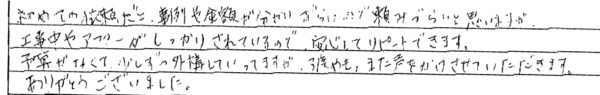 初めての依頼だと、事例や金額が分かりづらいので頼みづらいと思いますが、
工事中やアフターがしっかりされているので、安心してリピートできます。
予算がなくて、少しずつ外構していってますが、次も、また声をかけさせていただきます。
ありがとうございました。